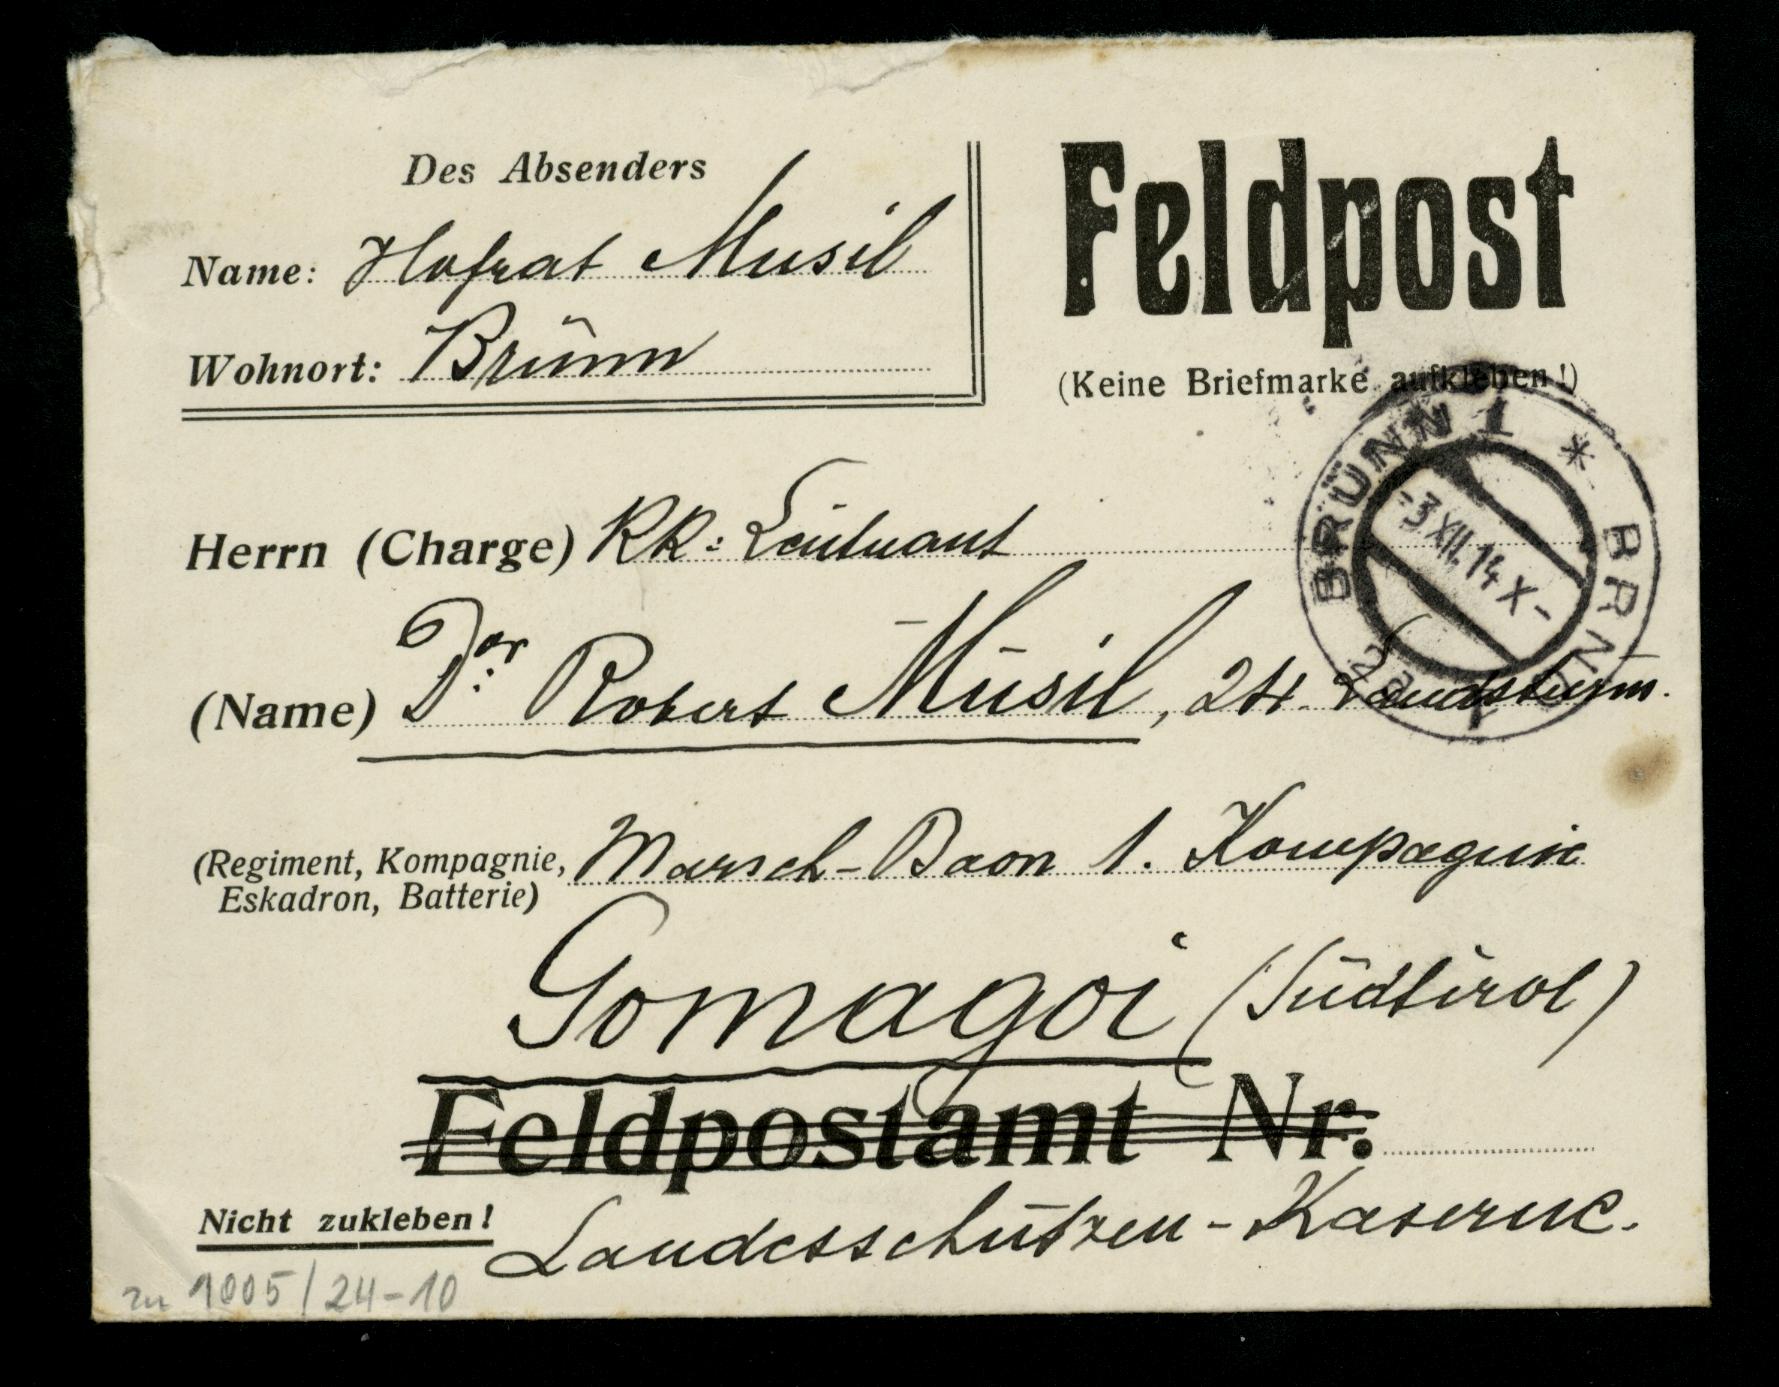 Des Absenders
Name: Hofrat Musil
Wohnort: Brünn
Feldpost
(Keine Briefmarke aufkleben!)
BRÜNN 1 * BRNO 1
-3 XII. 14 X-
Herrn (Charge) KK: Leutnant
(Name) Dor: Robert Musil, 24. Landsturm.
(Regiment, Kompagnie, Marsch-Baon 1. Kompagnie
Eskadron, Batterie)
Gomagoi (Südtirol)
Feldpostamt Nr.
Nicht zukleben!
Landesschützen-Kaserne.
zu 1005/24-10